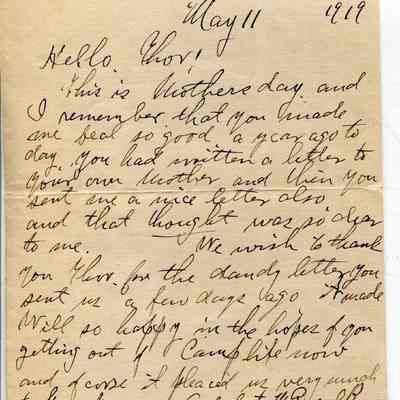 May 11 1919
Hello Thor!
This is Mothers day and
I remember that you made
me feel so good a year ago to
day, you had written a letter to
your own Mother and then you
sent me a nice letter also
and that thought was so dear
to me. We wish to thank
you Thor for the dandy letter you
sent us a few days ago it made
Will so happy in the hopes of you
getting out of Camp life now
and of corse it pleased us very much